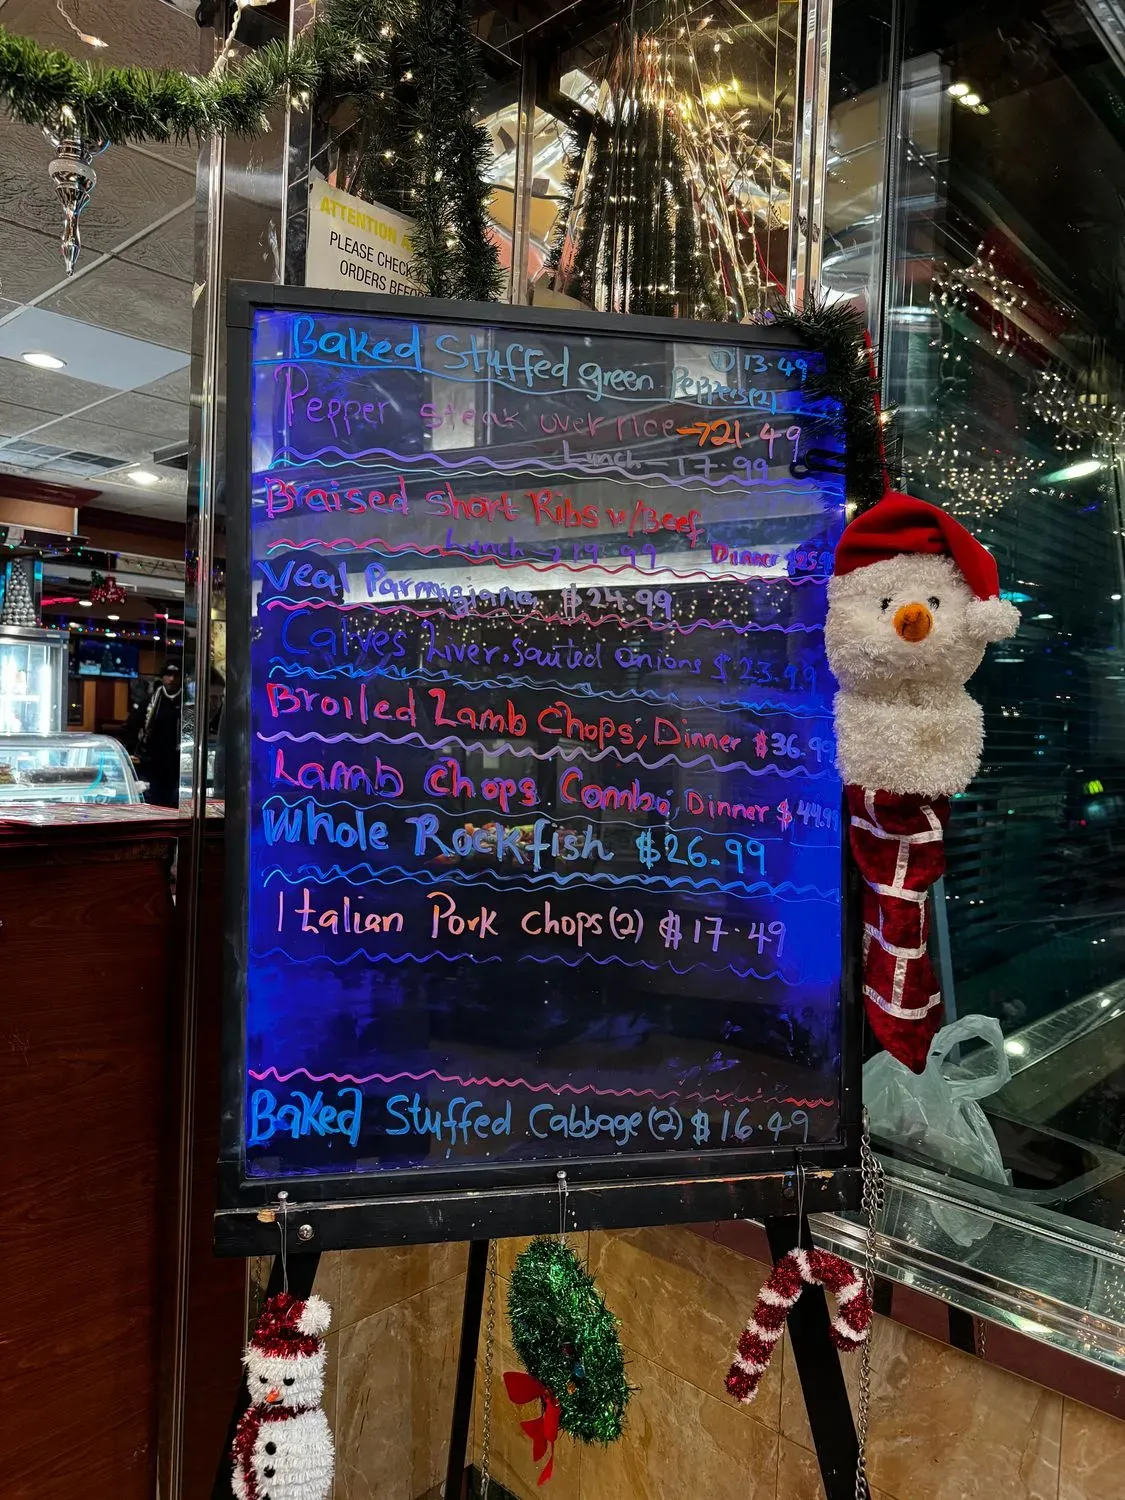 ATTENTION
PLEASE CHECK
ORDERS BEFO
Baked Stuffed green Peppers(2) 13.49
Pepper steak over rice → 21.49
Lunch – 17.99
Braised Short Ribs w/Beef
Lunch → 19.99 Dinner
Veal Parmigiana $24.99
Calves Liver, Sauted Onions $23.99
Broiled Lamb Chops, Dinner $36.99
Lamb Chops Combo, Dinner $44.99
Whole Rockfish $26.99
Italian Pork Chops(2) $17.49
Baked Stuffed Cabbage(2) $16.49